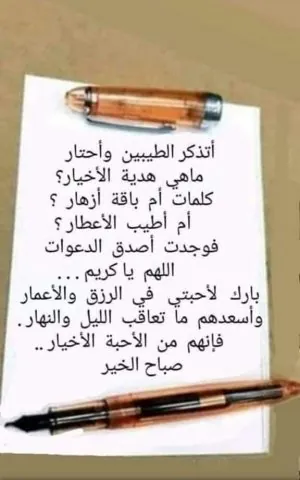 أتذكر الطيبين وأحتار
ماهي هدية الأخيار؟
كلمات أم باقة أزهار ؟
أم أطيب الأعطار ؟
فوجدت أصدق الدعوات
اللهم ياكريم ...
بارك لأحبتي في الرزق والأعمار
وأسعدهم ما تعاقب الليل والنهار .
فإنهم من الأحبة الأخيار ..
صباح الخير